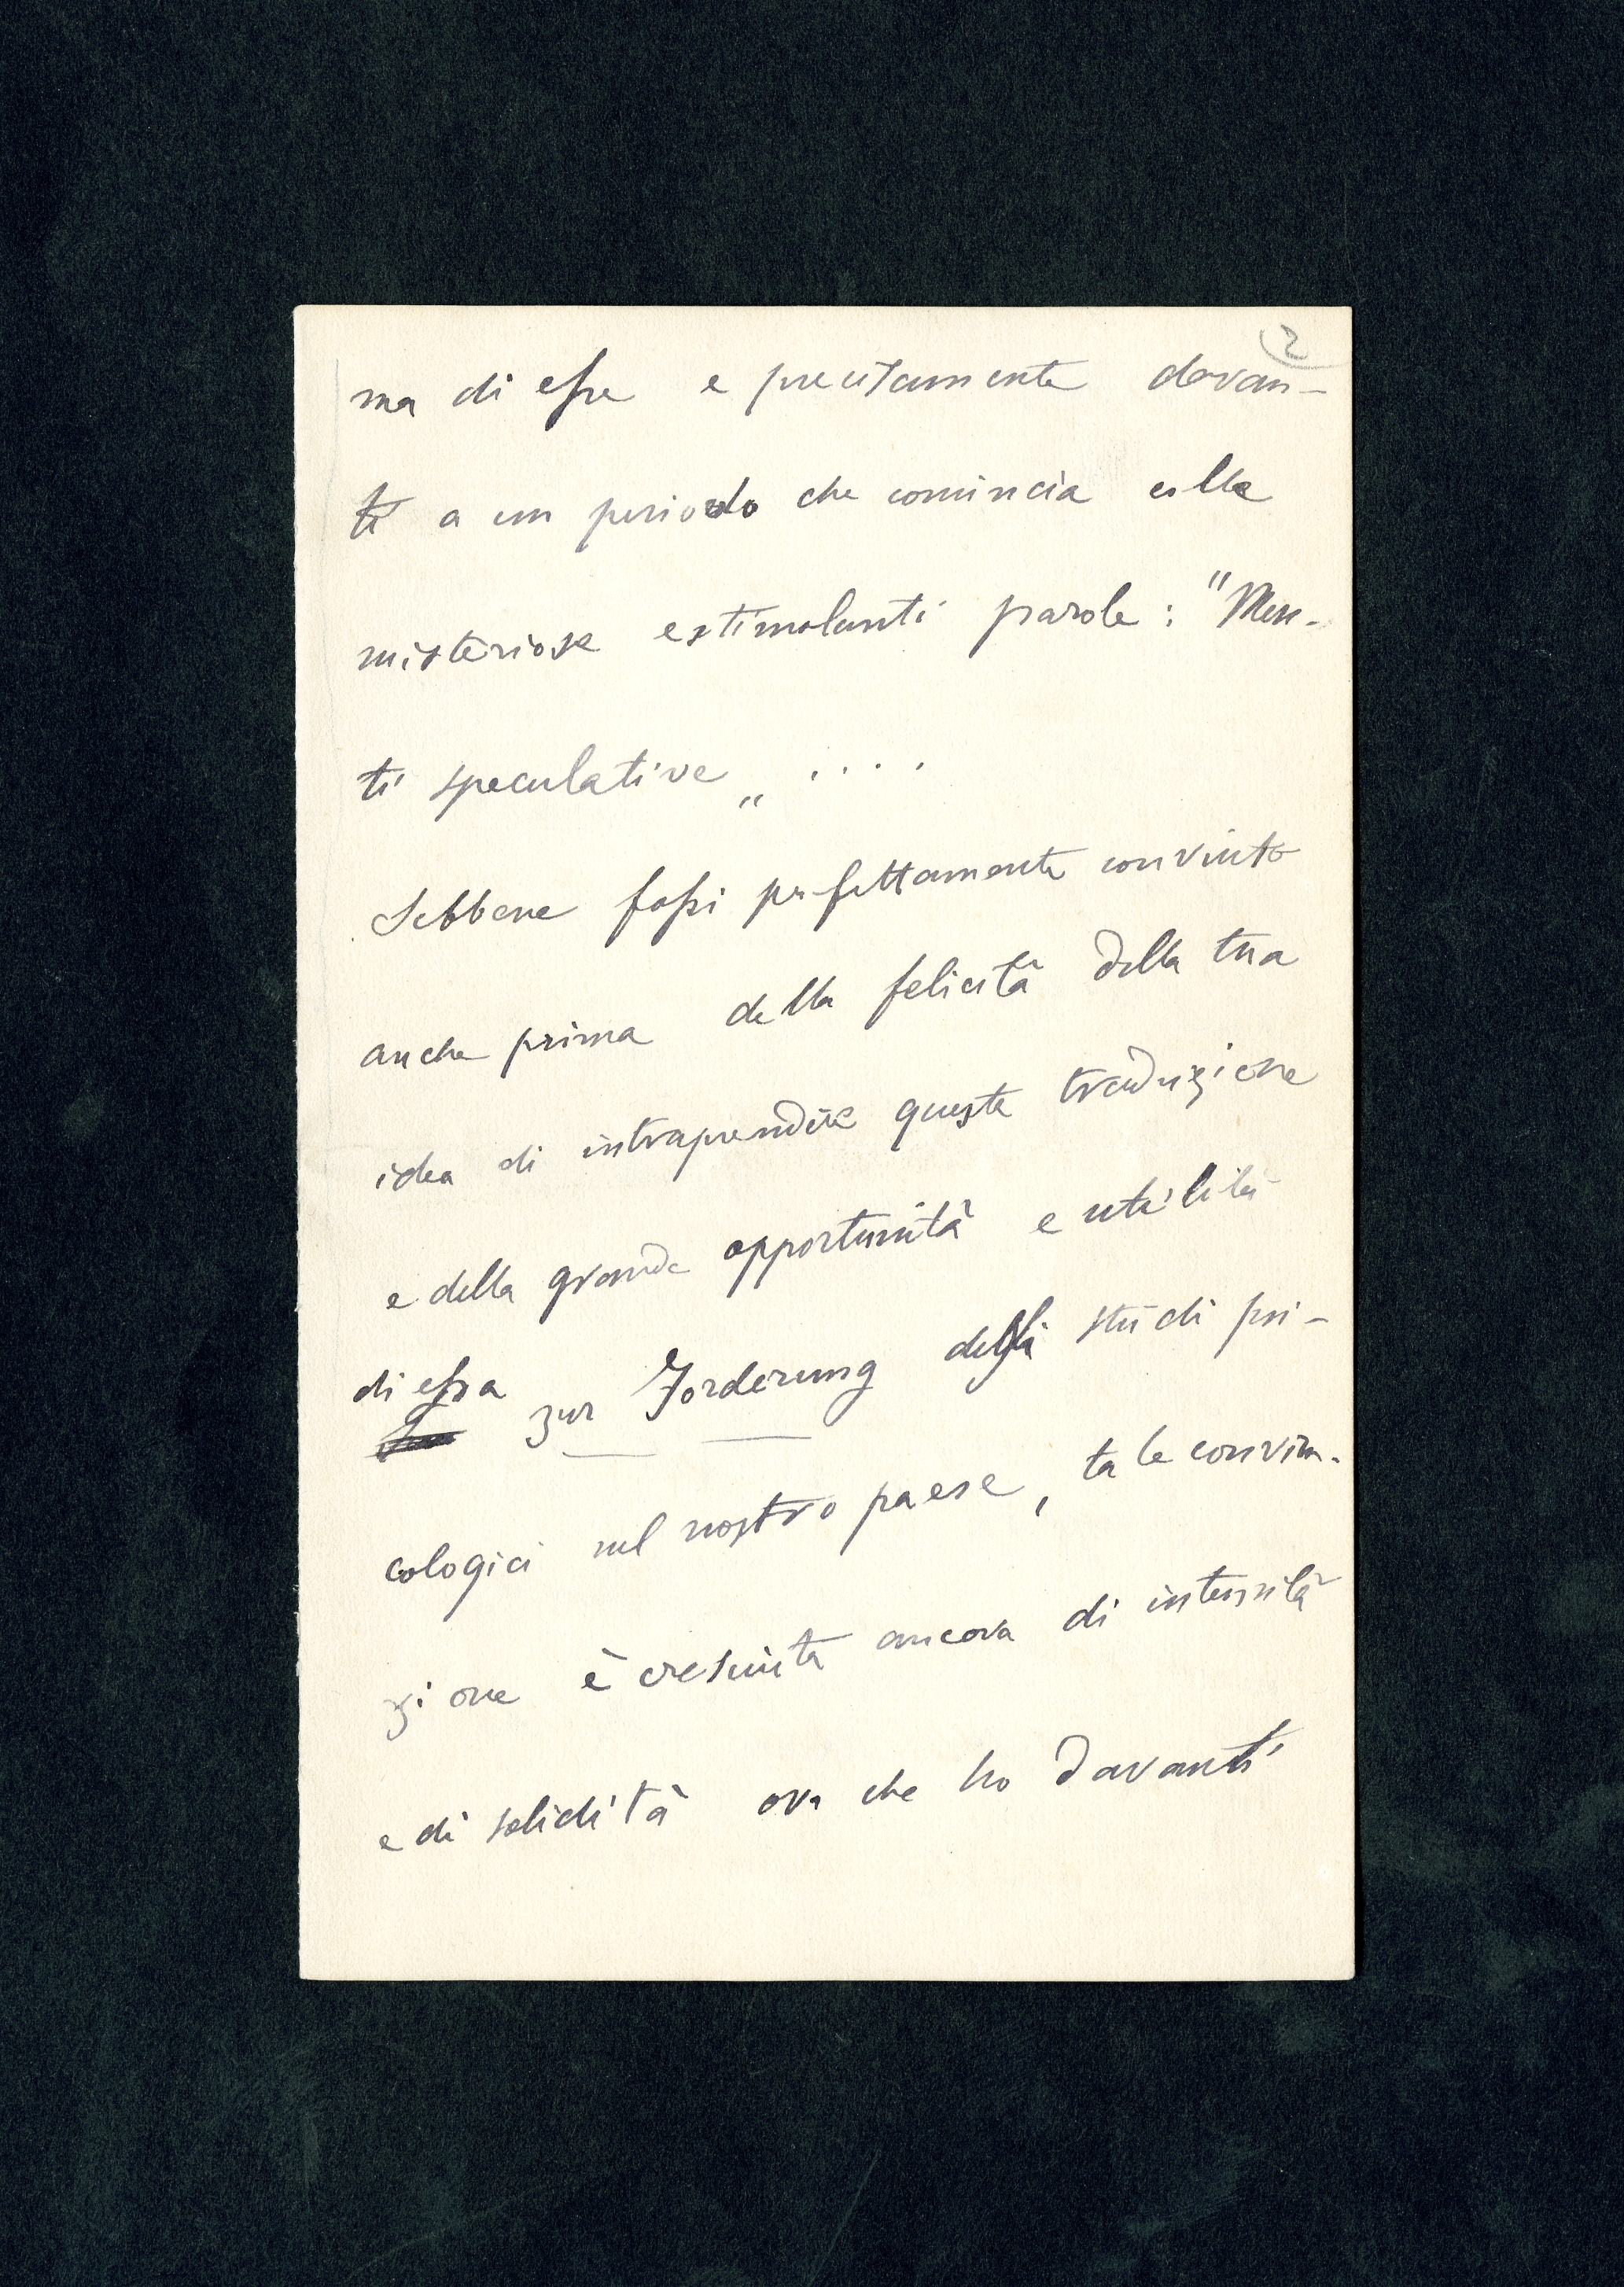 2
ma di esse e precisamente davan-
ti a un periodo che comincia colle
misteriose e stimolanti parole: "Men-
ti speculative„ ....
Sebbene fossi perfettamente convinto
anche prima della felicità della tua
idea di intraprendere questa traduzione
e della grande opportunità e utilità
di essa zur Förderung degli studi psi-
cologici nel nostro paese, tale convin-
zione è cresciuta ancora di intensità
e di solidità ora che ho davanti